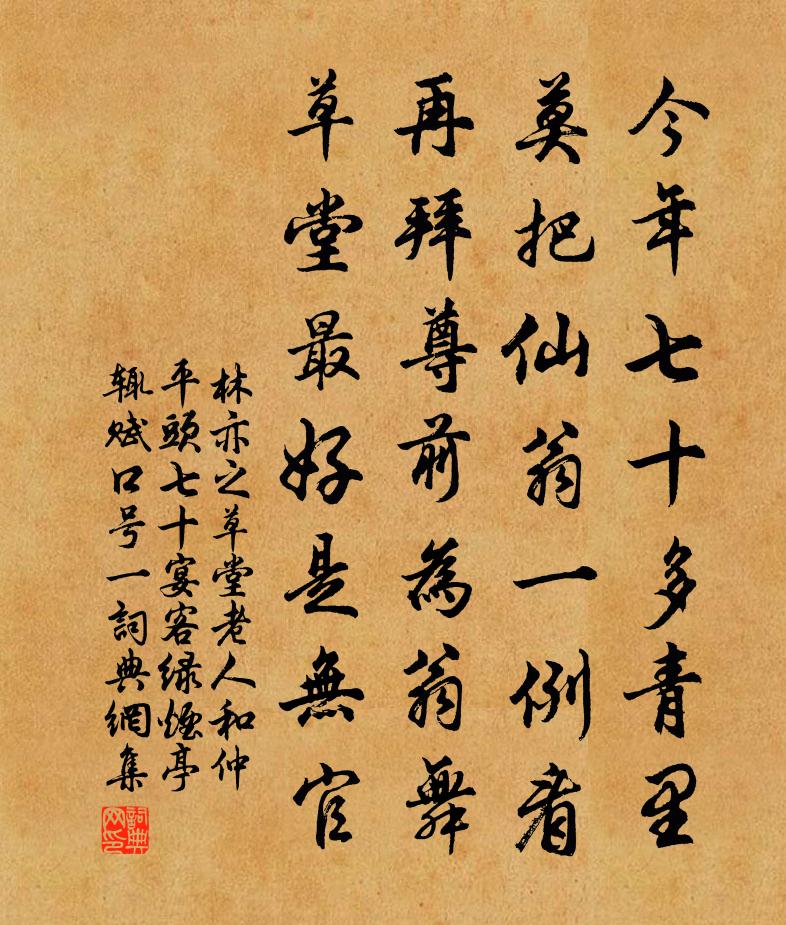 今年七十多青里
莫把仙翁一例看
再拜尊前為翁舞
草堂最好是無官
林亦之草堂老人和仲
平頭七十宴客绿煙亭
辄赋口号一詞典網集
詞典网印